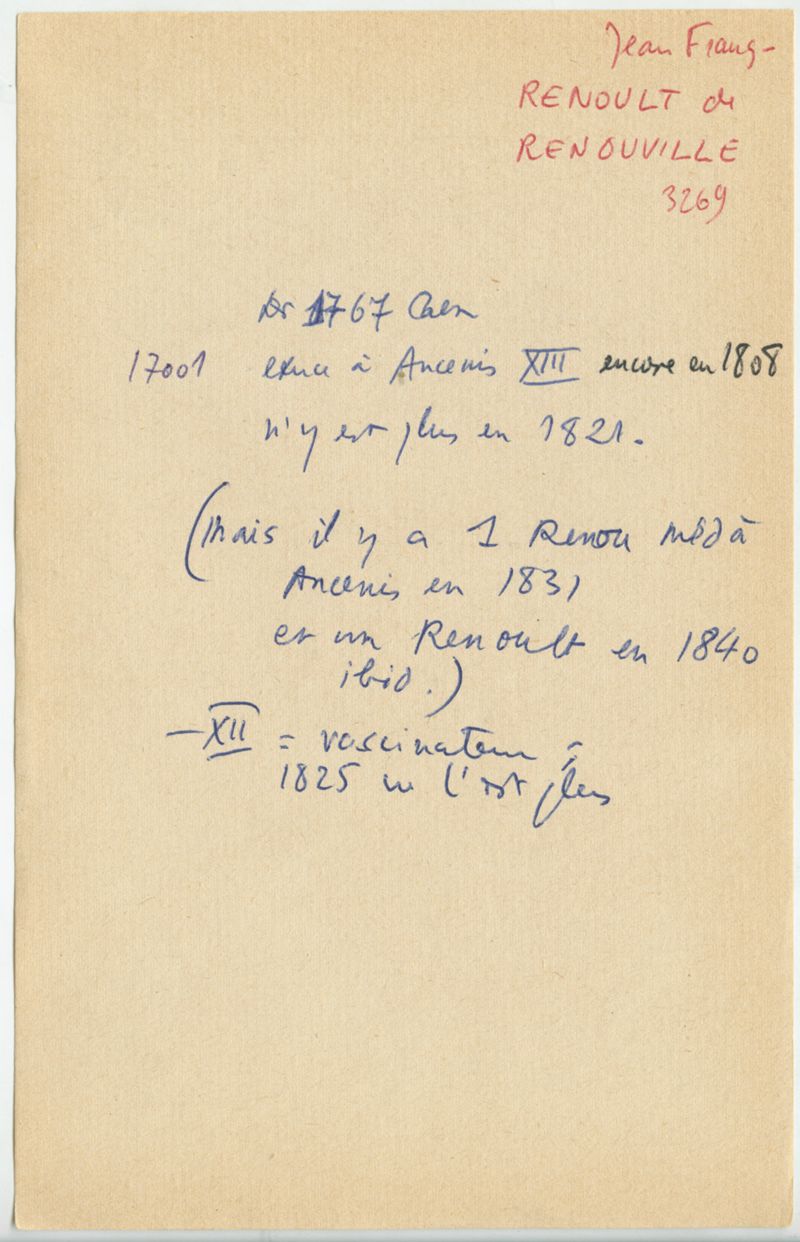 Jean Franç-
RENOULT de
RENOUVILLE
3269
Dr 1767 Caen
17001 exerce à Ancenis XIII encore en 1808
n'y est plus en 1821.
(Mais il y a 1 Renou méd à
Ancenis en 1831
et un Renoult en 1840
ibid.)
- XII = vascinateur -
1825 ne l'est plus